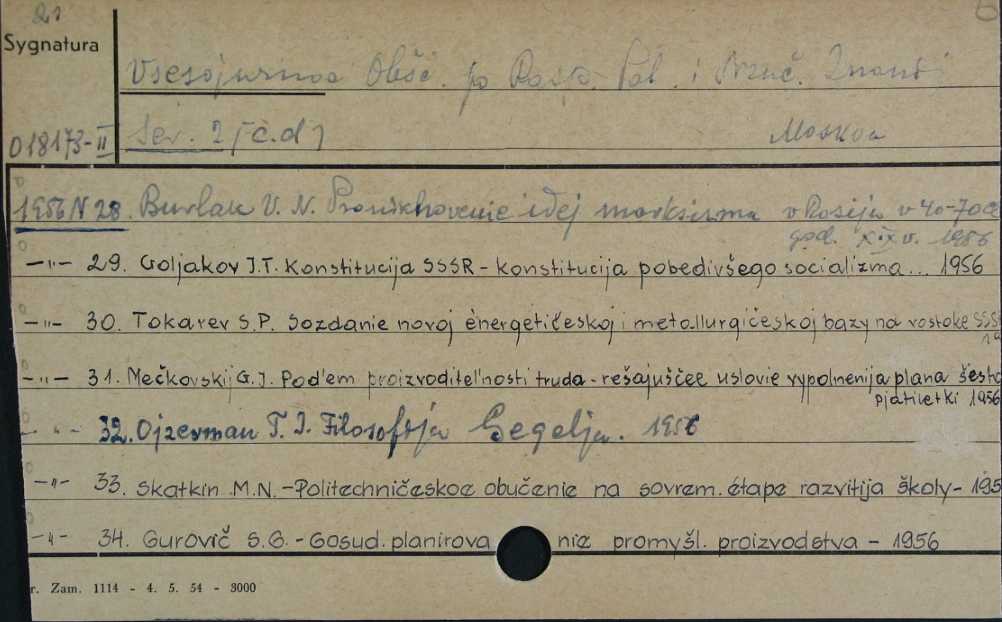 21
Sygnatura
Vsesojuznoe Obšč. po Rasp. Pol. i Nauč. Znanij
018173-II Ser. 2 [c.d] Moskva
1956 N 28. Burlak V. N. Proniknovenie idej marksizma v Rosiju v 40-70ch
god. XIX v. 1956
-"- 29. Goljakov J.T. Konstitucija SSSR - konstitucija pobedivšego socializma... 1956
-"- 30. Tokarev S.P. Sozdanie novoj énergetičeskoj i metallurgičeskoj bazy na vostoke SSS
-"- 31. Mečkovskij G.J. Pod'em proizvoditel'nosti truda - rešajuščee uslovie vypolnenija plana šesto
pjatiletki 1956
-"- 32. Ojzerman T. I. Filosofija Gegelja. 1956
-"- 33. Skatkin M.N. - Politechničeskoe obučenie na sovrem. étape razvitija školy - 195
-"- 34. Gurovič S.G. - Gosud. planirovanie promyšl. proizvodstva - 1956
r. Zam. 1114 - 4. 5. 54 - 3000